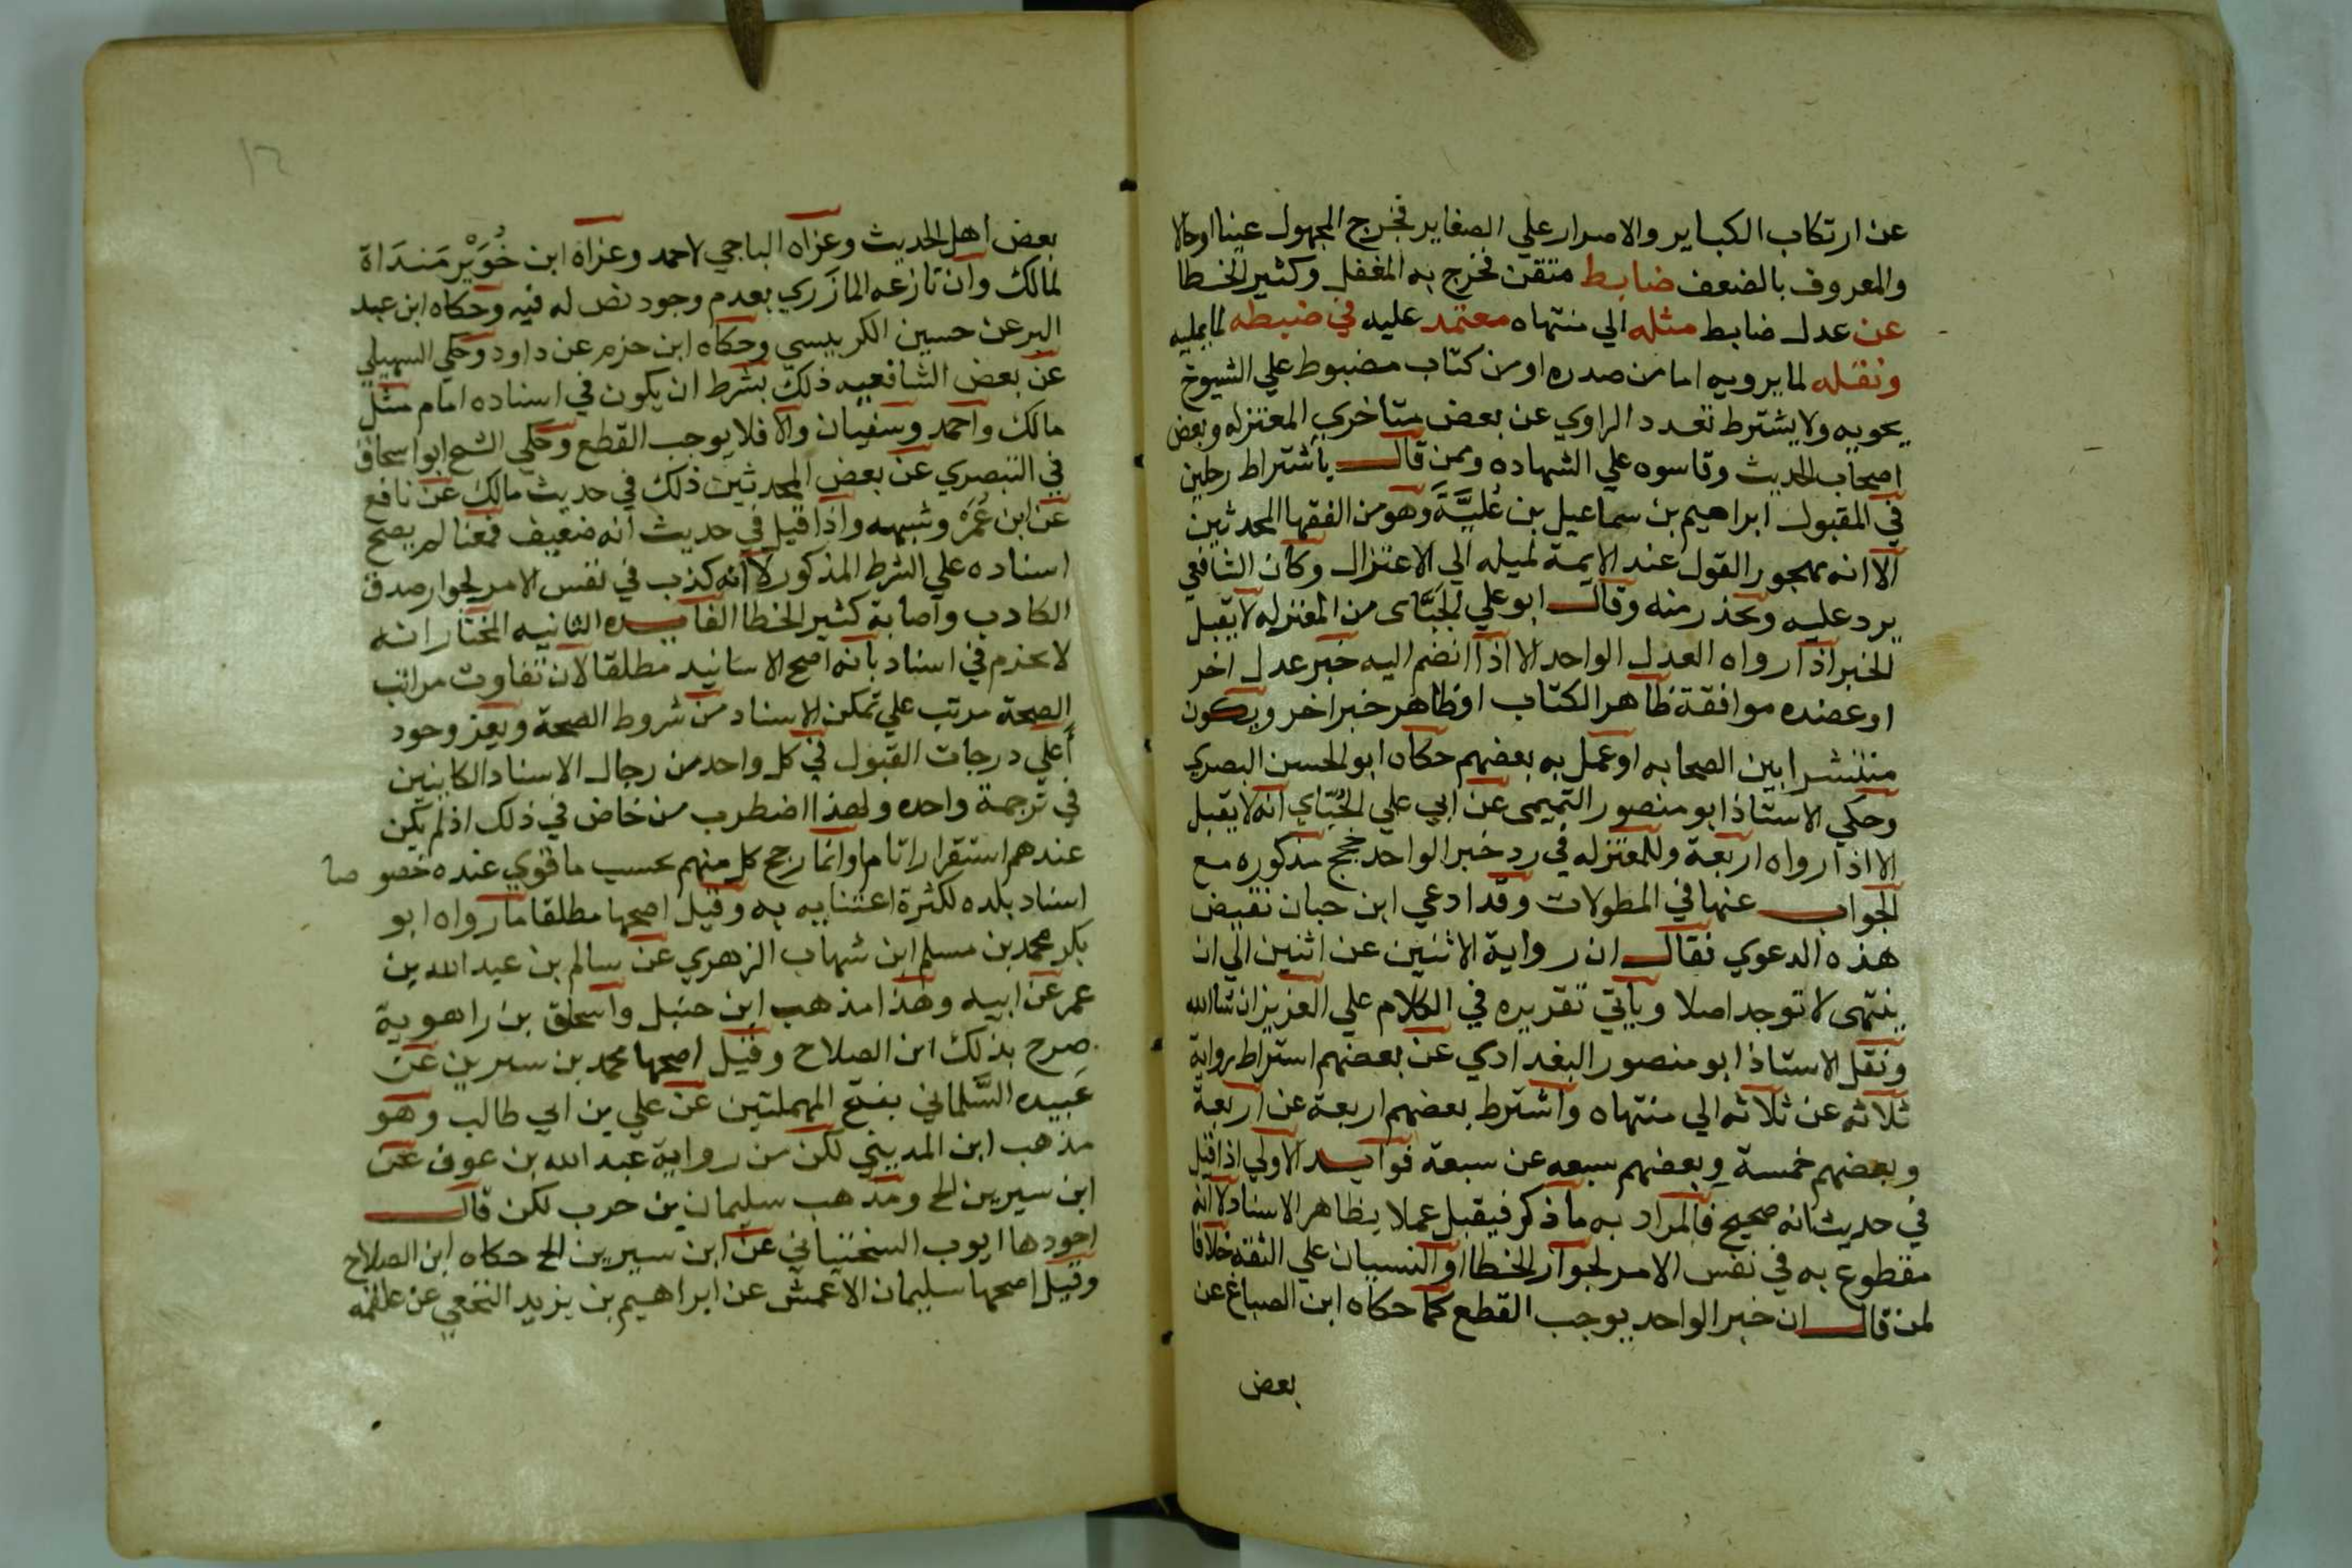 عن ارتكاب الكباير والاصرار علي الصغاير فخرج المجهول عينا اوحالا
والمعروف بالضعف ضابط متقن فخرج به المغفل وكثير الخطا
عن عدل ضابط مثله الي منتهاه معتمد عليه في ضبطه لما يمليه
ونقله لما يرويه اما من صدره او من كتاب مضبوط علي الشيوخ
يحويه ولا يشترط تعدد الراوي عن بعض متاخري المعتزله وبعض
اصحاب الحديث وقاسوه علي الشهاده وممن قال باشتراط رجلين
في المقبول ابراهيم بن سماعيل بن عُليَّةَ وهو من الفقها المحدثين
الا انه مهجور القول عند الايمة لميله الي الاعتزال وكان الشافعي
يرد عليه ويحذر منه وقال ابو علي الجبَّاى من المعتزله لا يقبل
الخبر اذا رواه العدل الواحد الا اذا انضم اليه خبر عدل اخر
او عضده موافقة ظاهر الكتاب او ظاهر خبر اخر ويكون
منتشرا بين الصحابه او عمل به بعضهم حكاه ابو الحسن البصري
وحكي الاستاذ ابو منصور التميمى عن ابي علي الجُبّاي انه لا يقبل
الا اذا رواه اربعة وللمعتزله في رد خبر الواحد حجج مذكوره مع
الجواب عنها في المطولات وقد ادعي ابن حبان نقيض
هذه الدعوي فقال ان رواية الاثنين عن اثنين الي ان
ينتهى لا توجد اصلا وياتي تقريره في الكلام علي العزيز ان شاالله
ونقل الاستاذ ابو منصور البغدادي عن بعضهم اشتراط رواية
ثلاثه عن ثلاثه الي منتهاه واشترط بعضهم اربعة عن اربعة
وبعضهم خمسة وبعضهم سبعه عن سبعة فوايد الاولي اذا قيل
في حديث انه صحيح فالمراد به ما ذكر فيقبل عملا بظاهر الاسناد لا انه
مقطوع به في نفس الامر لجواز الخطا او النسيان علي الثقه خلافا
لمن قال ان خبر الواحد يوجب القطع كما حكاه ابن الصباغ عن
بعض
بعض اهل الحديث وعزاه الباجي لاحمد وعزاه ابن خُوَيْر مَندَاة
لمالك وان نازعه المازَري بعدم وجود نص له فيه وحكاه ابن عبد
البر عن حسين الكربيسي وحكاه ابن حزم عن داود وحكي السهيلي
عن بعض الشافعيه ذلك بشرط ان يكون في اسناده امام مثل
مالك واحمد وسفيان والا فلا يوجب القطع وحكي الشيخ ابو اسحاق
في التبصري عن بعض المحدثين ذلك في حديث مالك عن نافع
عن ابن عُمَرَ وشبهه واذا قيل في حديث انه ضعيف فمعنا لم يصح
اسناده علي الشرط المذكور لا انه كذب في نفس الامر لجوار صدق
الكادب واصابة كثير الخطا الفايده الثانيه المختار انه
لا يجزم في اسناد بانه اصح الاسانيد مطلقا لان تفاوت مراتب
الصحة مرتب علي تمكن الاسناد من شروط الصحة ويعز وجود
أعلي درجات القبول في كل واحد من رجال الاسناد الكاينين
في ترجمة واحده ولهذا اضطرب من خاض في ذلك اذ لم يكن
عندهم استقرارا تاما وانما رجح كل منهم بحسب ما قوي عنده خصوصا
اسناد بلده لكثرة اعتنايه به وقيل اصحها مطلقا ما رواه ابو
بكر محمد بن مسلم ابن شهاب الزهري عن سالم بن عبد الله بن
عمر عن ابيه وهذا مذهب ابن حنبل واسحاق بن راهوية
صرح بذلك ابن الصلاح وقيل اصحها محمد بن سيرين عن
عَبيده السَّلماني بفتح المهملتين عن علي بن ابي طالب وهو
مذهب ابن المديني لكن من رواية عبد الله بن عوف عن
ابن سيرين الخ ومذهب سليمان بن حرب لكن قال
اجودها ايوب السختياني عن ابن سيرين الخ حكاه ابن الصلاح
وقيل اصحها سليمان الاعمش عن ابراهيم بن يزيد النخعي عن علقمه